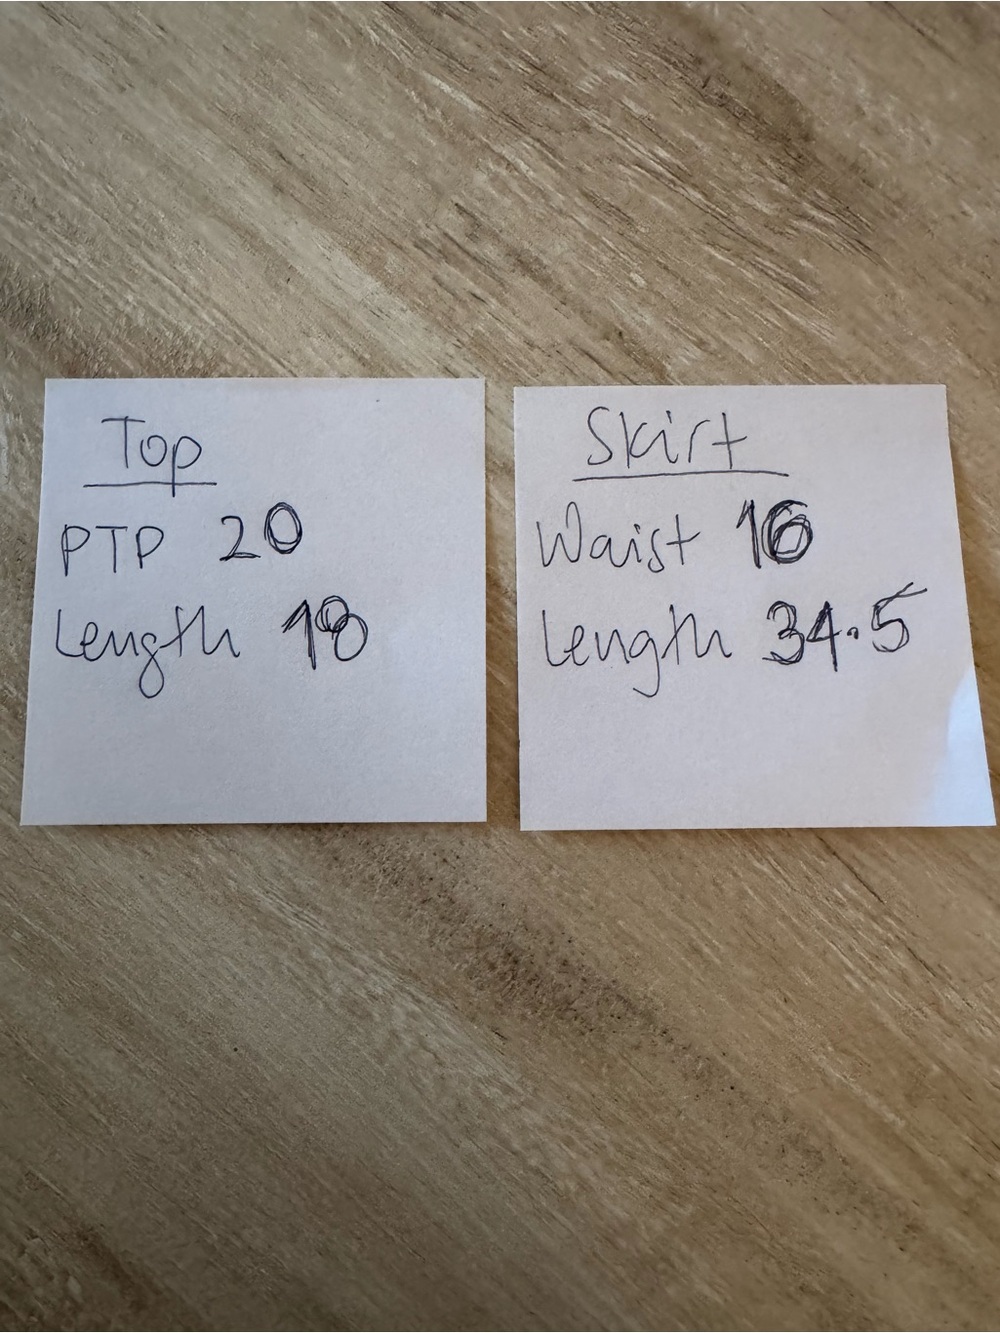 Top
PTP 20
Length 18
Skirt
Waist 16
Length 34.5